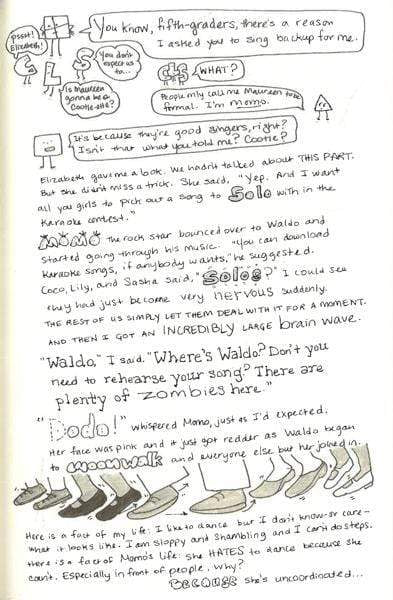 You know, fifth-graders, there's a reason
I asked you to sing backup for me.
pssst!
Elizabeth!
C
L
S
You don't
expect us
to...
Is Maureen
gonna be a
Cootie-ite?
C+S
WHAT?
People only call me Maureen to be
formal. I'm MOMO.
It's because they're good singers, right?
Isn't that what you told me? Cootie?
Elizabeth gave me a look. We hadn't talked about THIS PART.
But she didn't miss a trick. She said, "Yep. And I want
all you girls to pick out a song to Solo with in the
Karaoke contest."
MOMO the rock star bounced over to Waldo and
started going through his music. "You can download
Karaoke songs, if anybody wants," he suggested.
Coco, Lily, and Sasha said, "Solos?" I could see
they had just become very nervous suddenly.
THE REST OF US SIMPLY LET THEM DEAL WITH IT FOR A MOMENT.
AND THEN I GOT AN INCREDIBLY LARGE brain wave.
"Waldo," I said. "Where's Waldo? Don't you
need to rehearse your song? There are
plenty of zombies here."
"Dodo!" whispered Momo, just as I'd expected.
Her face was pink and it just got redder as Waldo began
to MOONWALK and everyone else but her joined in.
Here is a fact of my life: I like to dance but I don't know-or care-
what it looks like. I am sloppy and shambling and I can't do steps.
there is a fact of Momo's life: she HATES to dance because she
can't. Especially in front of people. Why?
BECAUSE she's uncoordinated...